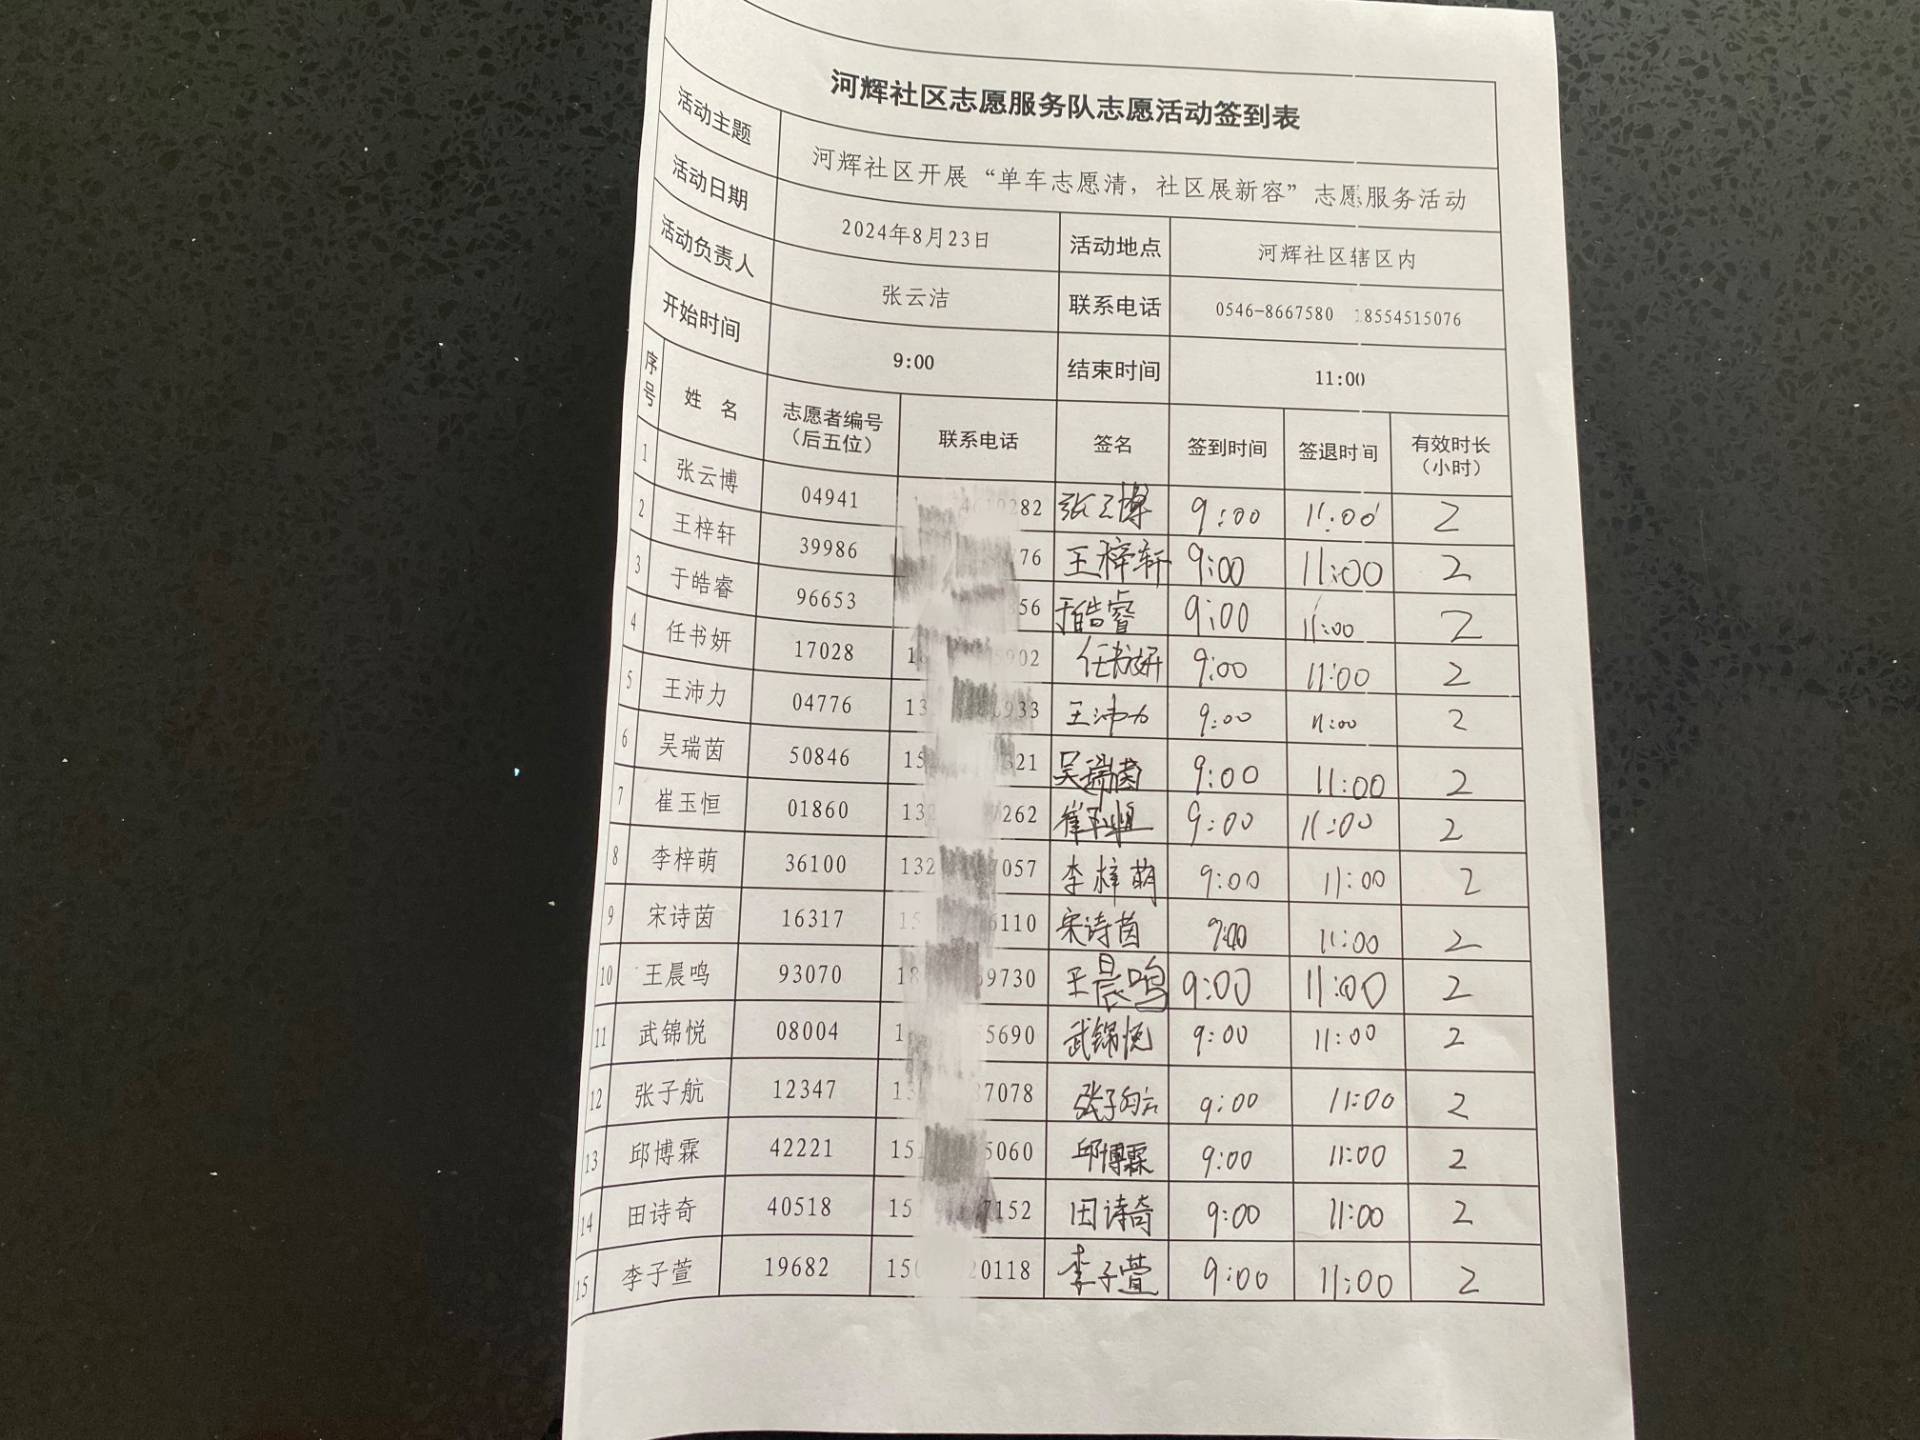 河辉社区志愿服务队志愿活动签到表
活动主题 河辉社区开展“单车志愿清，社区展新容”志愿服务活动
活动日期 2024年8月23日 活动地点 河辉社区辖区内
活动负责人 张云洁 联系电话 0546-8667580 18554515076
开始时间 9:00 结束时间 11:00
序号 姓 名 志愿者编号（后五位） 联系电话 签名 签到时间 签退时间 有效时长（小时）
1 张云博 04941 282 张云博 9:00 11:00 2
2 王梓轩 39986 76 王梓轩 9:00 11:00 2
3 于皓睿 96653 56 于皓睿 9:00 11:00 2
4 任书妍 17028 902 任书妍 9:00 11:00 2
5 王沛力 04776 13 933 王沛力 9:00 11:00 2
6 吴瑞茵 50846 15 321 吴瑞茵 9:00 11:00 2
7 崔玉恒 01860 13 262 崔玉恒 9:00 11:00 2
8 李梓萌 36100 132 7057 李梓萌 9:00 11:00 2
9 宋诗茵 16317 15 6110 宋诗茵 9:00 11:00 2
10 王晨鸣 93070 18 9730 王晨鸣 9:00 11:00 2
11 武锦悦 08004 1 5690 武锦悦 9:00 11:00 2
12 张子航 12347 13 7078 张子航 9:00 11:00 2
13 邱博霖 42221 151 5060 邱博霖 9:00 11:00 2
14 田诗奇 40518 15 7152 田诗奇 9:00 11:00 2
15 李子萱 19682 150 20118 李子萱 9:00 11:00 2